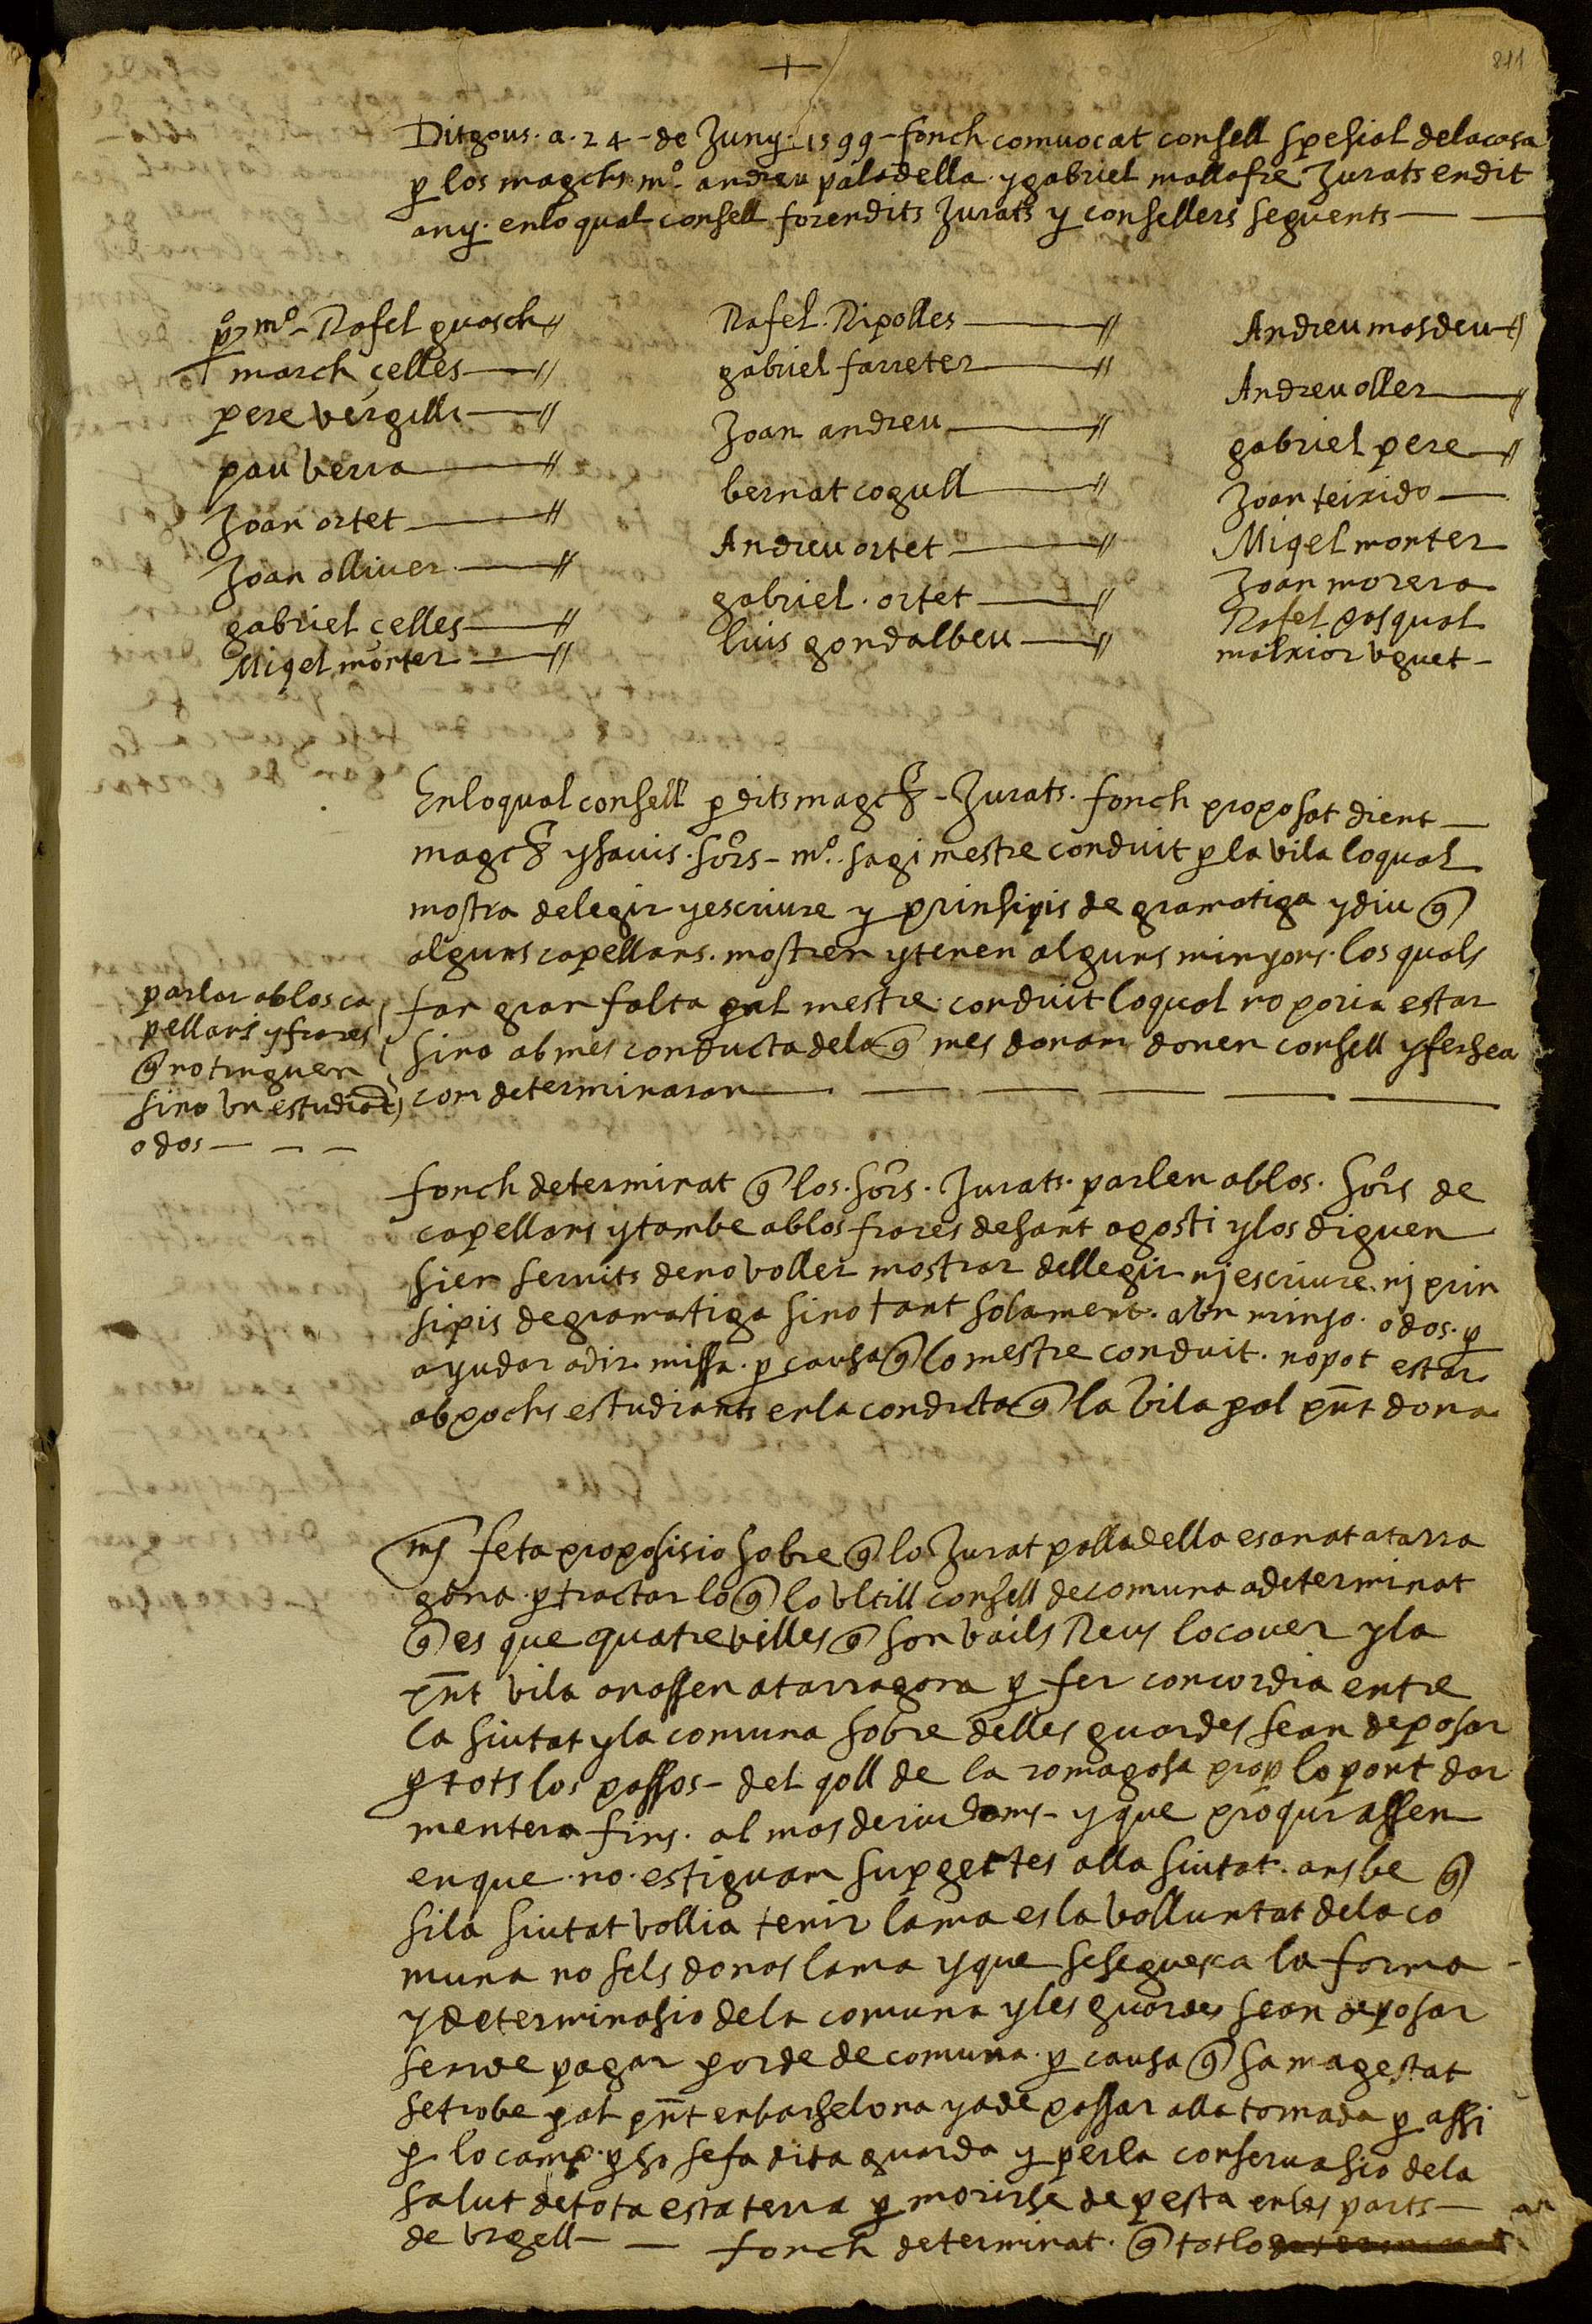 211
+
Ditgous. a. 24 - de Juny. 1599 - fonch comvocat consell spesial delacasa
p los magchs m.º andreu paladella. y gabriel mallafre Jurats endit
any. enlo qual consell forendits Jurats y consellers seguents — —
pº mº - Rafel guasch
march çelles —
pere vergilli —
pau verra —
Joan ortet —
Joan olliuer —
gabriel çelles —
Miqel monter —
Rafel. Ripolles —
gabriel farreter —
Joan andreu —
bernat cogull —
Andreu ortet —
gabriel. ortet —
luis gondalbeu —
Andreu masdeu
Andreu oller —
gabriel pere —
Joan teixido —
Miqel monter
Joan morera
Rafel pasqual
malxior vguet —
Enloqual consell p dits magchs - Jurats. fonch proposat dient —
magchs y sauis. sors - mº. sagi mestre conduit p la vila loqual
mostra delegir y escriure y prinsipis de gramatiga y diu q
alguns capellans. mostren y tenen alguns minyons. los quals
fan gran falta pal mestre. conduit loqual no poria estar
sino ab mes conducta dela q mes donam donen consell y fersea
com determinaran — — — — — —
parlar ablos ca
pellans y frares
q no tinguen
sino vn estudiat
o dos — — —
fonch determinat q los. sors. Jurats. parlen ablos. sors de
capellans y tambe ablos frares de sant agosti y los diguen
sien seruits deno voller mostrar dellegir nj escriure. nj prin
sipis de gramatiga sino tant solament. abn minso. o dos. p
ayudar adir. missa. p causa q lo mestre conduit. no pot estar
ab pochs estudiants enla conducta q la vila pal pnt dona
mes feta proposisio sobre q lo Jurat palladella es anat atarra
gona. p tractar lo q lo vltill consell de comuna a determinat
q es que quatre villes q son vails Reus locouer y la
pnt vila anassen atarragona p fer concordia entre
la siutat y la comuna sobre delles guardes sean deposar
p tots los passos - del qoll de la romagosa prop lo pont dar
mentera fins. al mas deriudoms - y que proqurassen
enque. no. estiguam supgectes alla siutat. ans be q
sila siutat vollia tenir la ma es la volluntat dela co
muna no sels donas la ma y que sesegueca la forma
y determinasio dela comuna y les guardes sean deposar
sende pagar porde de comuna. p causa q sa magestat
setrobe pal pnt enbarselona y ade passar alla tornada p assi
p lo camp. pso sefa dita guarda y perla conseruasio dela
salut detota esta terra p morirse de pesta enles parts —
de vrgell — — fonch determinat. q totlo